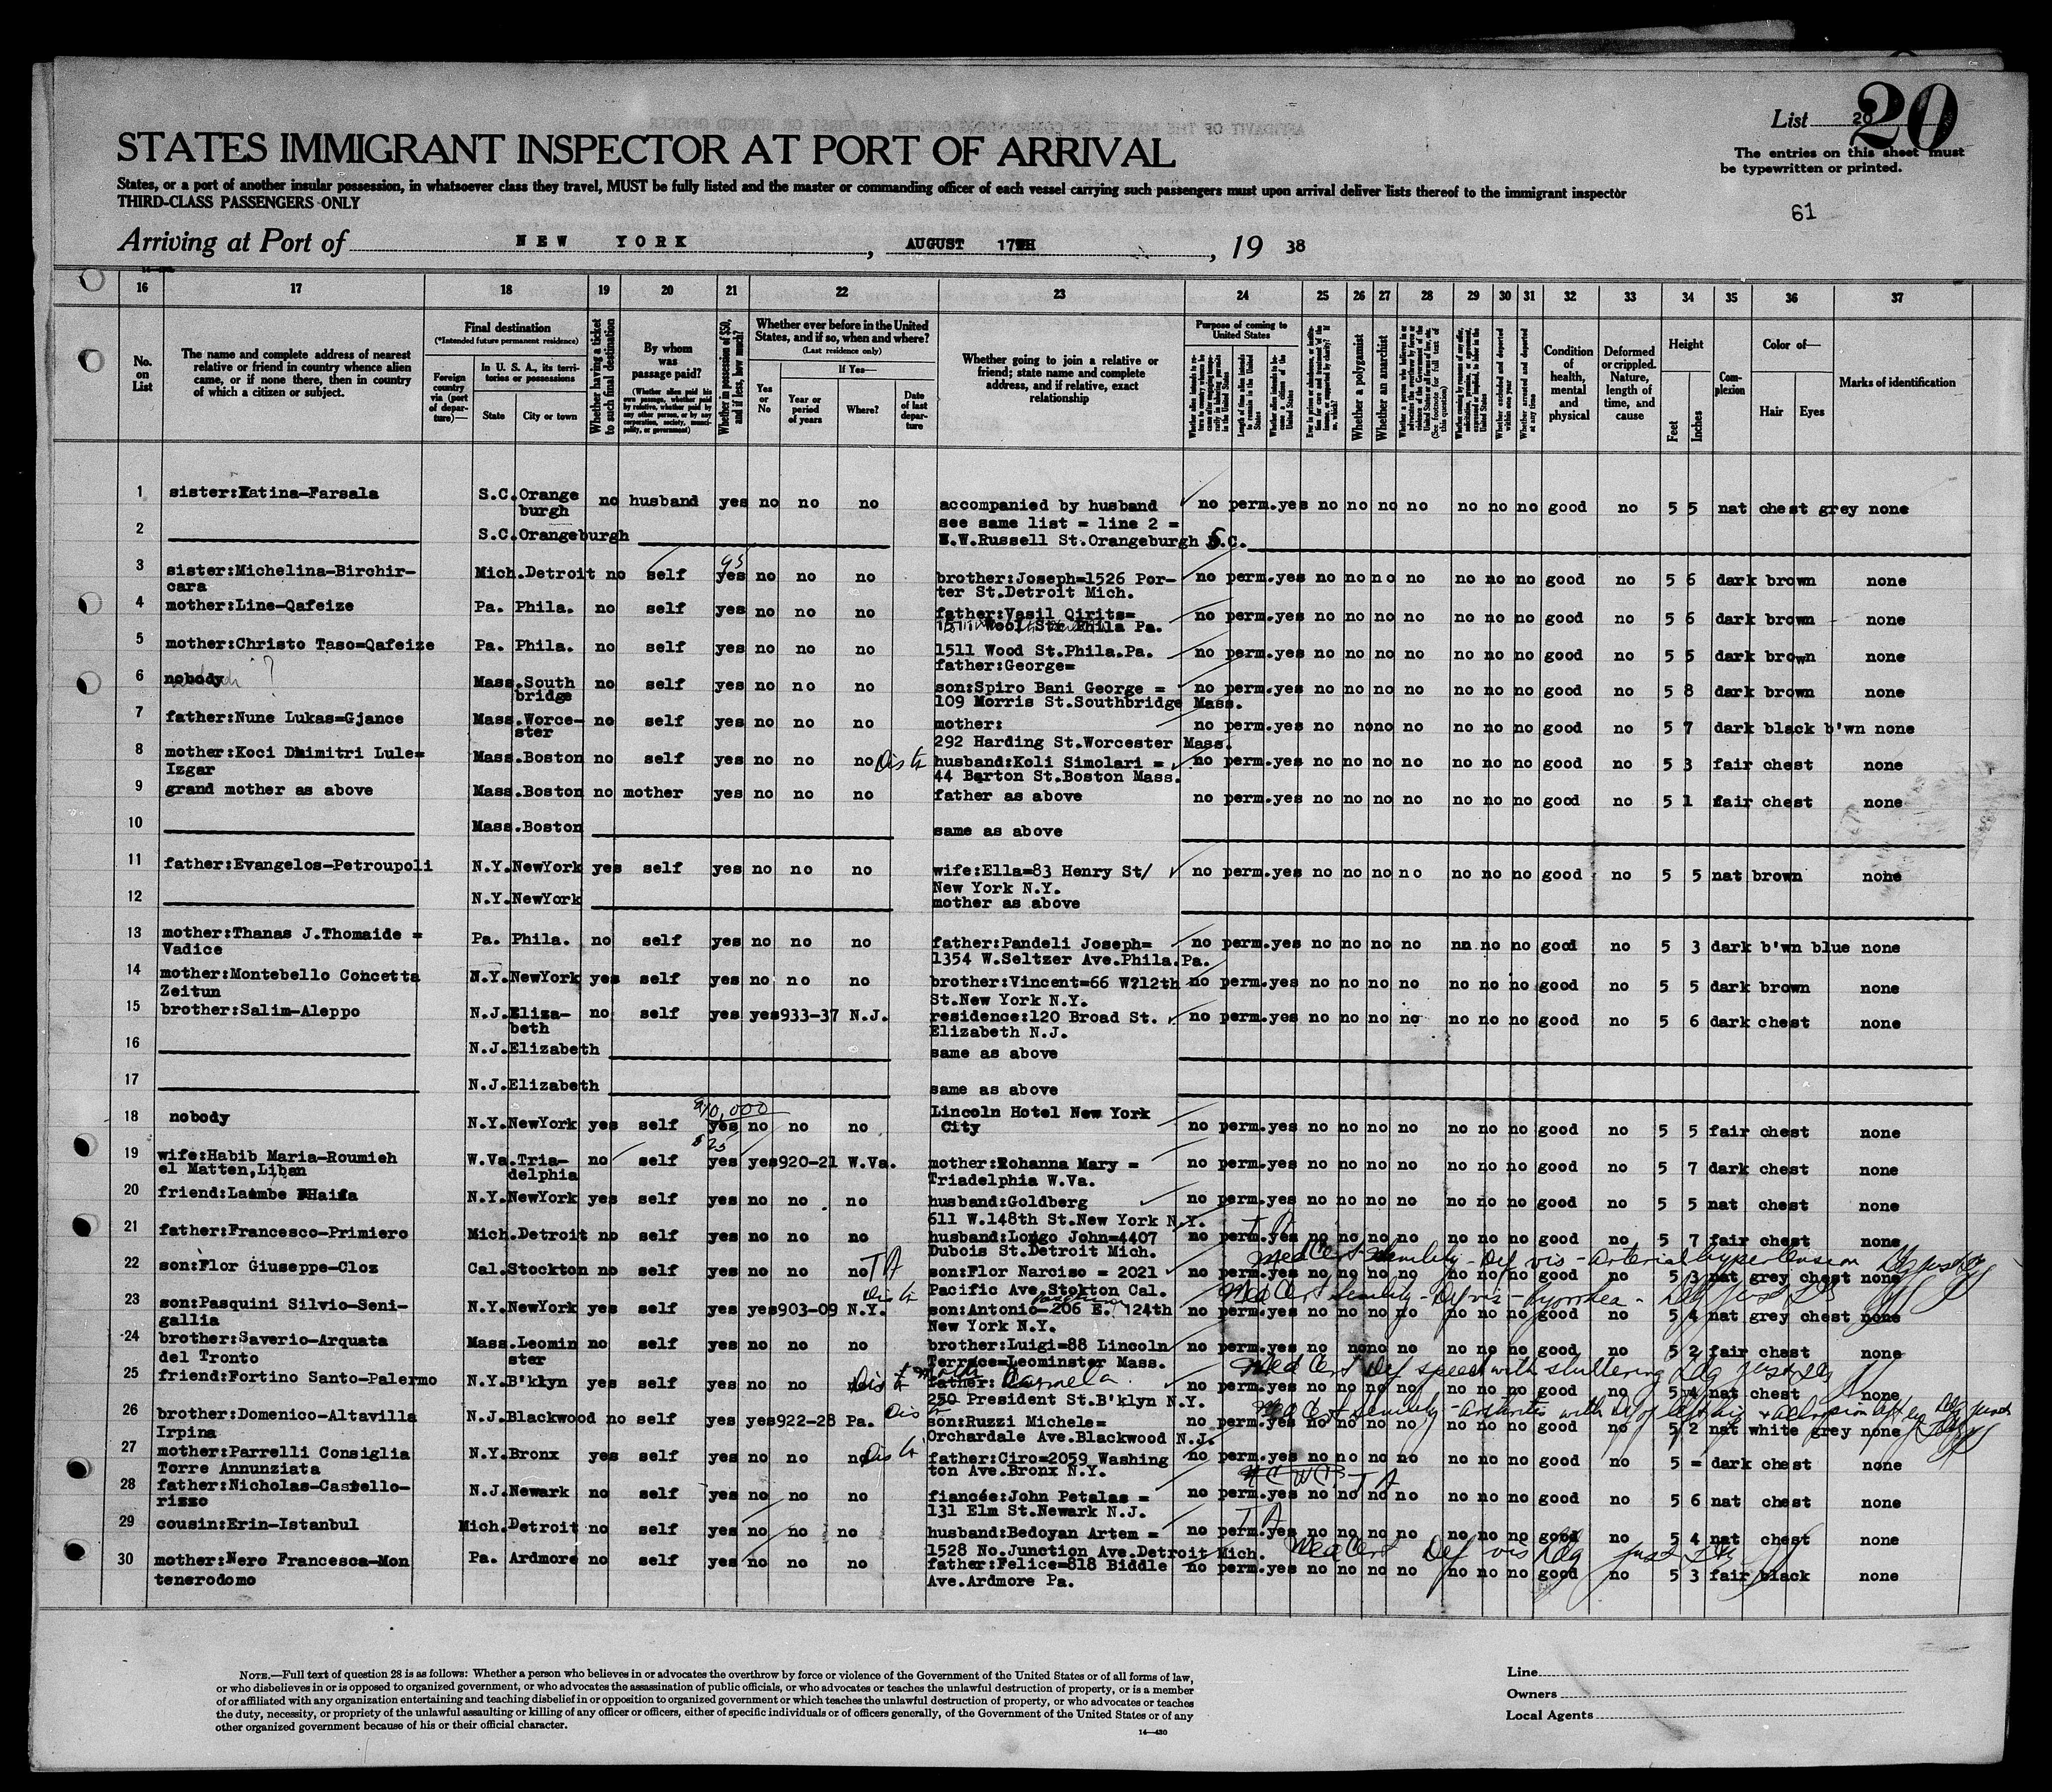 List 20
20
The entries on this sheet must
be typewritten or printed.
61
STATES IMMIGRANT INSPECTOR AT PORT OF ARRIVAL
States, or a port of another insular possession, in whatsoever class they travel, MUST be fully listed and the master or commanding officer of each vessel carrying such passengers must upon arrival deliver lists thereof to the immigrant inspector
THIRD-CLASS PASSENGERS ONLY
Arriving at Port of NEW YORK, AUGUST 17TH, 19 38
16 17 18 19 20 21 22 23 24 25 26 27 28 29 30 31 32 33 34 35 36 37
No. on List
The name and complete address of nearest relative or friend in country whence alien came, or if none there, then in country of which a citizen or subject.
Final destination
(*Intended future permanent residence)
Foreign country via (port of departure)—
In U. S. A., its territories or possessions
State
City or town
Whether having a ticket to such final destination
By whom was passage paid?
(Whether alien paid his own passage, whether paid by relative, whether paid by any other person, or by any corporation, society, municipality, or government)
Whether in possession of $50, and if less, how much?
Whether ever before in the United States, and if so, when and where?
(Last residence only)
Yes or No
If Yes—
Year or period of years
Where?
Date of last departure
Whether going to join a relative or friend; state name and complete address, and if relative, exact relationship
Purpose of coming to United States
Length of time alien intends to remain in the United States
Whether alien intends to become a citizen of the United States
Whether a polygamist
Whether an anarchist
(See footnote for full text of this question)
Whether arrested and deported at any time
Condition of health, mental and physical
Deformed or crippled. Nature, length of time, and cause
Height
Feet
Inches
Complexion
Color of—
Hair
Eyes
Marks of identification
1 sister:Katina-Farsala S.C. Orange burgh no husband yes no no no accompanied by husband no perm. yes no no no no no no no good no 5 5 nat chest grey none
see same list = line 2 =
2 S.C. Orangeburgh W.W.Russell St.Orangeburgh S.C.
3 sister:Michelina-Birchir- Mich. Detroit no self yes no no no brother:Joseph=1526 Por- no perm. yes no no no no no no no good no 5 6 dark brown none
cara ter St.Detroit Mich.
4 mother:Line-Qafeize Pa. Phila. no self yes no no no father:Vasil Qirits= no perm. yes no no no no no no no good no 5 6 dark brown none
1511 Wood St. Phila Pa.
5 mother:Christo Taso=Qafeize Pa. Phila. no self yes no no no 1511 Wood St.Phila.Pa. no perm. yes no no no no no no no good no 5 5 dark brown none
father:George=
6 nobody ? Mass. South bridge no self yes no no no son:Spiro Bani George = no perm. yes no no no no no no no good no 5 8 dark brown none
109 Morris St.Southbridge Mass.
7 father:Nune Lukas=Gjance Mass. Worce- ster no self yes no no no mother: no perm. yes no no no no no no no good no 5 7 dark black b'wn none
292 Harding St.Worcester Mass.
8 mother:Koci Dhimitri Lule= Mass. Boston no self yes no no no husband:Koli Simolari = no perm. yes no no no no no no no good no 5 3 fair chest none
Izgar 44 Barton St.Boston Mass.
9 grand mother as above Mass. Boston no mother yes no no no father as above no perm. yes no no no no no no no good no 5 1 fair chest none
10 Mass. Boston same as above
11 father:Evangelos-Petroupoli N.Y. NewYork yes self yes no no no wife:Ella=83 Henry St/ no perm. yes no no no no no no no good no 5 5 nat brown none
New York N.Y.
12 N.Y. NewYork mother as above
13 mother:Thanas J.Thomaide = Pa. Phila. no self yes no no no father:Pandeli Joseph= no perm. yes no no no no nn no no good no 5 3 dark b'wn blue none
Vadice 1354 W.Seltzer Ave.Phila.Pa.
14 mother:Montebello Concetta N.Y. NewYork yes self yes no no no brother:Vincent=66 W?12th no perm. yes no no no no no no no good no 5 5 dark brown none
Zeitun St.New York N.Y.
15 brother:Salim-Aleppo N.J. Eliza- beth no self yes yes 933-37 N.J. residence:120 Broad St. no perm. yes no no no no no no no good no 5 6 dark chest none
Elizabeth N.J.
16 N.J. Elizabeth same as above
17 N.J. Elizabeth same as above
$10,000
18 nobody N.Y. NewYork yes self yes no no no Lincoln Hotel New York City no perm. yes no no no no no no no good no 5 5 fair chest none
$25
19 wife:Habib Maria-Roumieh W.Va. Tria- delphia no self yes yes 920-21 W.Va. mother:Rohanna Mary = no perm. yes no no no no no no no good no 5 7 dark chest none
el Matten,Liban Triadelphia W.Va.
20 friend: N.Y. NewYork yes self yes no no no husband:Goldberg no perm. yes no no no no no no no good no 5 5 nat chest none
611 W.148th St.New York N.Y.
21 father:Francesco-Primiero Mich. Detroit no self yes no no no husband:Longo John=4407 no perm. yes no no no no no no no good no 5 7 fair chest none
Dubois St.Detroit Mich.
Med Cert senility - Def vis - arterial hypertension
22 son:Flor Giuseppe-Cloz Cal. Stockton no self yes no no no TA son:Flor Narciso = 2021 no perm. yes no no no no no no no good no 5 3 nat grey chest none
Pacific Ave.Stokton Cal.
Med Cert senility - Def vis - pyorrhea
23 son:Pasquini Silvio-Seni- N.Y. NewYork yes self yes yes 903-09 N.Y. son:Antonio-206 E. 124th no perm. yes no no no no no no no good no 5 4 nat grey chest none
gallia New York N.Y.
24 brother:Saverio-Arquata Mass. Leomin ster no self yes no no no brother:Luigi=88 Lincoln no perm. yes no no no no no no no good no 5 2 fair chest none
del Tronto Terrace=Leominster Mass.
Med Cert Def speech with stuttering
25 friend:Fortino Santo-Palermo N.Y. B'klyn yes self yes no no no father: Carmela no perm. yes no no no no no no no good no 5 4 nat chest none
250 President St.B'klyn N.Y.
26 brother:Domenico-Altavilla N.J. Blackwood no self yes yes 922-28 Pa. son:Ruzzi Michele= no perm. yes no no no no no no no good no 5 2 nat white grey none
Irpina Orchardale Ave.Blackwood N.J.
27 mother:Parrelli Consiglia N.Y. Bronx yes self yes no no no father:Ciro=2059 Washing no perm. yes no no no no no no no good no 5 = dark chest none
Torre Annunziata ton Ave.Bronx N.Y.
28 father:Nicholas-Castello- N.J. Newark no self yes no no no fiancée:John Petalas = no perm. yes no no no no no no no good no 5 6 nat chest none
risso 131 Elm St.Newark N.J.
TA
29 cousin:Erin-Istanbul Mich. Detroit no self yes no no no husband:Bedoyan Artem = no perm. yes no no no no no no no good no 5 4 nat chest none
1528 No.Junction Ave.Detroit Mich.
Med Cert Def vis
30 mother:Nero Francesca-Mon Pa. Ardmore no self yes no no no father:Felice=818 Biddle no perm. yes no no no no no no no good no 5 3 fair black none
tenerodomo Ave.Ardmore Pa.
NOTE.—Full text of question 28 is as follows: Whether a person who believes in or advocates the overthrow by force or violence of the Government of the United States or of all forms of law,
or who disbelieves in or is opposed to organized government, or who advocates the assassination of public officials, or who advocates or teaches the unlawful destruction of property, or is a member
of or affiliated with any organization entertaining and teaching disbelief in or opposition to organized government or which teaches the unlawful destruction of property, or who advocates or teaches
the duty, necessity, or propriety of the unlawful assaulting or killing of any officer or officers, either of specific individuals or of officers generally, of the Government of the United States or of any
other organized government because of his or their official character.
14—430
Line
Owners
Local Agents